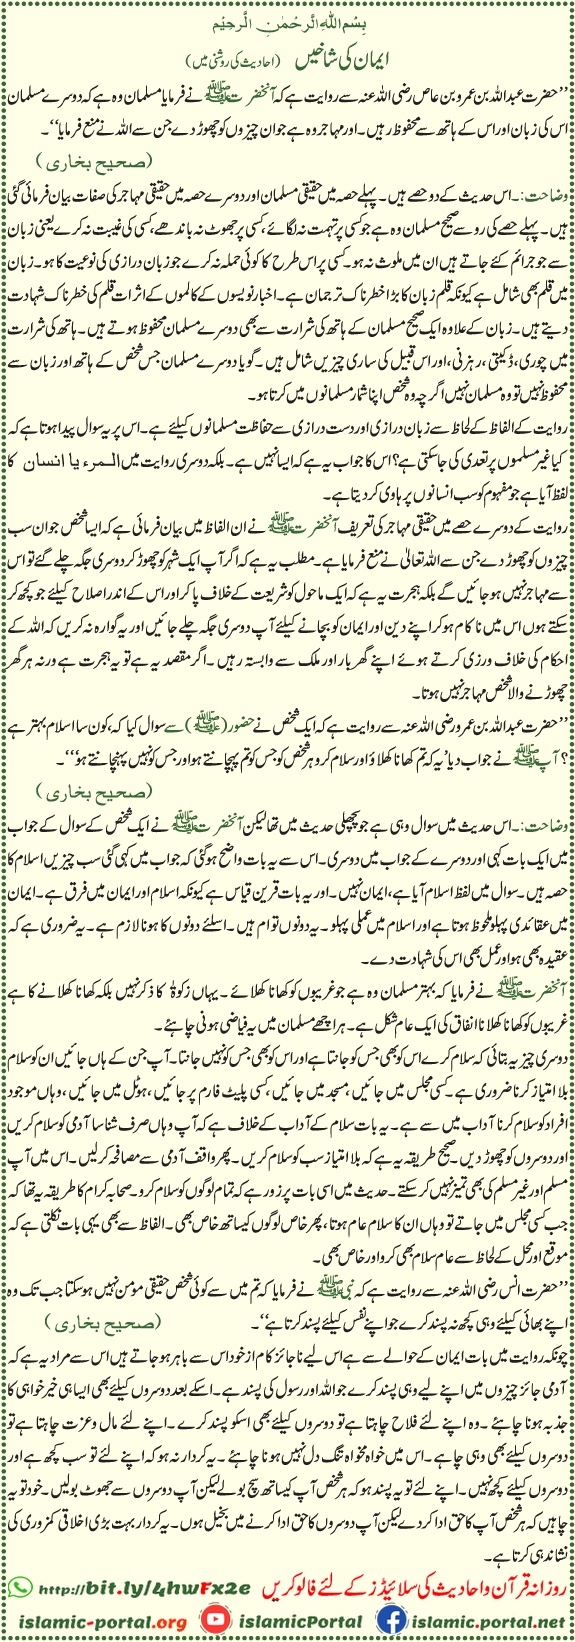 بِسْمِ اللّٰهِ الرَّحْمٰنِ الرَّحِيْمِ
ایمان کی شاخیں (احادیث کی روشنی میں)
’’حضرت عبداللہ بن عمرو بن عاص رضی اللہ عنہ سے روایت ہے کہ آنحضرت ﷺ نے فرمایا مسلمان وہ ہے کہ دوسرے مسلمان
اس کی زبان اور اس کے ہاتھ سے محفوظ رہیں۔ اور مہاجر وہ ہے جو ان چیزوں کو چھوڑ دے جن سے اللہ نے منع فرمایا‘‘۔
(صحیح بخاری)
وضاحت:۔ اس حدیث کے دو حصے ہیں۔ پہلے حصہ میں حقیقی مسلمان اور دوسرے حصہ میں حقیقی مہاجر کی صفات بیان فرمائی گئی
ہیں۔ پہلے حصے کی رو سے صحیح مسلمان وہ ہے جو کسی پر تہمت نہ لگائے، کسی پر جھوٹ نہ باندھے، کسی کی غیبت نہ کرے یعنی زبان
سے جو جرائم کئے جاتے ہیں ان میں ملوث نہ ہو۔ کسی پر اس طرح کا کوئی حملہ نہ کرے جو زبان درازی کی نوعیت کا ہو۔ زبان
میں قلم بھی شامل ہے کیونکہ قلم زبان کا بڑا خطرناک ترجمان ہے۔ اخبار نویسوں کے کالموں کے اثرات قلم کی خطرناک شہادت
دیتے ہیں۔ زبان کے علاوہ ایک صحیح مسلمان کے ہاتھ کی شرارت سے بھی دوسرے مسلمان محفوظ ہوتے ہیں۔ ہاتھ کی شرارت
میں چوری، ڈکیتی، رہزنی، اور اس قبیل کی ساری چیزیں شامل ہیں۔ گویا دوسرے مسلمان جس شخص کے ہاتھ اور زبان سے
محفوظ نہیں تو وہ مسلمان نہیں اگرچہ وہ شخص اپنا شمار مسلمانوں میں کرتا ہو۔
روایت کے الفاظ کے لحاظ سے زبان درازی اور دست درازی سے حفاظت مسلمانوں کیلئے ہے۔ اس پر یہ سوال پیدا ہوتا ہے کہ
کیا غیر مسلموں پر تعدی کی جاسکتی ہے؟ اس کا جواب یہ ہے کہ ایسا نہیں ہے۔ بلکہ دوسری روایت میں المرء یا انسان کا
لفظ آیا ہے جو مفہوم کو سب انسانوں پر حاوی کر دیتا ہے۔
روایت کے دوسرے حصے میں حقیقی مہاجر کی تعریف آنحضرت ﷺ نے ان الفاظ میں بیان فرمائی ہے کہ ایسا شخص جو ان سب
چیزوں کو چھوڑ دے جن سے اللہ تعالیٰ نے منع فرمایا ہے۔ مطلب یہ ہے کہ اگر آپ ایک شہر کو چھوڑ کر دوسری جگہ چلے گئے تو اس
سے مہاجر نہیں ہو جائیں گے بلکہ ہجرت یہ ہے کہ ایک ماحول کو شریعت کے خلاف پا کر اور اس کے اندر اصلاح کیلئے جو کچھ کر
سکتے ہوں اس میں ناکام ہو کر اپنے دین اور ایمان کو بچانے کیلئے آپ دوسری جگہ چلے جائیں اور یہ گوارہ نہ کریں کہ اللہ کے
احکام کی خلاف ورزی کرتے ہوئے اپنے گھر بار اور ملک سے وابستہ رہیں۔ اگر مقصد یہ ہے تو یہ ہجرت ہے ورنہ ہر گھر
چھوڑنے والا شخص مہاجر نہیں ہوتا۔
’’حضرت عبداللہ بن عمرو رضی اللہ عنہ سے روایت ہے کہ ایک شخص نے حضور (ﷺ) سے سوال کیا کہ، کون سا اسلام بہتر ہے
؟ آپ ﷺ نے جواب دیا ’یہ کہ تم کھانا کھلاؤ اور سلام کرو ہر شخص کو جس کو تم پہچانتے ہو اور جس کو نہیں پہچانتے ہو‘‘‘۔
(صحیح بخاری)
وضاحت:۔ اس حدیث میں سوال وہی ہے جو پچھلی حدیث میں تھا لیکن آنحضرت ﷺ نے ایک شخص کے سوال کے جواب
میں ایک بات کہی اور دوسرے کے جواب میں دوسری۔ اس سے یہ بات واضح ہوگئی کہ جواب میں کہی گئی سب چیزیں اسلام کا
حصہ ہیں۔ سوال میں لفظ اسلام آیا ہے، ایمان نہیں۔ اور یہ بات قرین قیاس ہے کیونکہ اسلام اور ایمان میں فرق ہے۔ ایمان
میں عقائدی پہلو ملحوظ ہوتا ہے اور اسلام میں عملی پہلو۔ یہ دونوں توام ہیں۔ اسلئے دونوں کا ہونا لازم ہے۔ یہ ضروری ہے کہ
عقیدہ بھی ہو اور عمل بھی اس کی شہادت دے۔
آنحضرت ﷺ نے فرمایا کہ بہتر مسلمان وہ ہے جو غریبوں کو کھانا کھلائے۔ یہاں زکوۃ کا ذکر نہیں بلکہ کھانا کھلانے کا ہے
غریبوں کو کھانا کھلانا انفاق کی ایک عام شکل ہے۔ ہر اچھے مسلمان میں یہ فیاضی ہونی چاہئے۔
دوسری چیز یہ بتائی کہ سلام کرے اس کو بھی جس کو جانتا ہے اور اس کو بھی جس کو نہیں جانتا۔ آپ جن کے ہاں جائیں ان کو سلام
بلا امتیاز کرنا ضروری ہے۔ کسی مجلس میں جائیں، مسجد میں جائیں، کسی پلیٹ فارم پر جائیں، ہوٹل میں جائیں، وہاں موجود
افراد کو سلام کرنا آداب میں سے ہے۔ یہ بات سلام کے آداب کے خلاف ہے کہ آپ وہاں صرف شناسا آدمی کو سلام کریں
اور دوسروں کو چھوڑ دیں۔ صحیح طریقہ یہ ہے کہ بلا امتیاز سب کو سلام کریں۔ پھر واقف آدمی سے مصافحہ کر لیں۔ اس میں آپ
مسلم اور غیر مسلم کی بھی تمیز نہیں کر سکتے۔ حدیث میں اسی بات پر زور ہے کہ تمام لوگوں کو سلام کرو۔ صحابہ کرام کا طریقہ یہ تھا کہ
جب کسی مجلس میں جاتے تو وہاں ان کا سلام عام ہوتا، پھر خاص لوگوں کیساتھ خاص بھی۔ الفاظ سے بھی یہی بات نکلتی ہے کہ
موقع اور محل کے لحاظ سے عام سلام بھی کرو اور خاص بھی۔
’’حضرت انس رضی اللہ عنہ سے روایت ہے کہ نبی ﷺ نے فرمایا کہ تم میں سے کوئی شخص حقیقی مومن نہیں ہو سکتا جب تک وہ
اپنے بھائی کیلئے وہی کچھ نہ پسند کرے جو اپنے نفس کیلئے پسند کرتا ہے‘‘۔ (صحیح بخاری)
چونکہ روایت میں بات ایمان کے حوالے سے ہے اس لیے ناجائز کام از خود اس سے باہر ہو جاتے ہیں اس سے مراد یہ ہے کہ
آدمی جائز چیزوں میں اپنے لیے وہی پسند کرے جو اللہ اور رسول کی پسند ہے۔ اسکے بعد دوسروں کیلئے بھی ایسا ہی خیر خواہی کا
جذبہ ہونا چاہئے۔ وہ اپنے لئے فلاح چاہتا ہے تو دوسروں کیلئے بھی اسکو پسند کرے۔ اپنے لئے مال و عزت چاہتا ہے تو
دوسروں کیلئے بھی وہی چاہے۔ اس میں خواہ مخواہ تنگ دل نہیں ہونا چاہئے۔ یہ کردار نہ ہو کہ اپنے لئے تو سب کچھ ہے اور
دوسروں کیلئے کچھ نہیں۔ اپنے لئے تو یہ پسند ہو کہ ہر شخص آپ کیساتھ سچ بولے لیکن آپ دوسروں سے جھوٹ بولیں۔ خود تو یہ
چاہیں کہ ہر شخص آپ کا حق ادا کر دے لیکن آپ دوسروں کا حق ادا کرنے میں بخیل ہوں۔ یہ کردار بہت بڑی اخلاقی کمزوری کی
نشاندہی کرتا ہے۔
روزانہ قرآن و احادیث کی سلائیڈز کے لئے فالو کریں http://bit.ly/4hwFx2e
islamic-portal.org islamicPortal islamic.portal.net